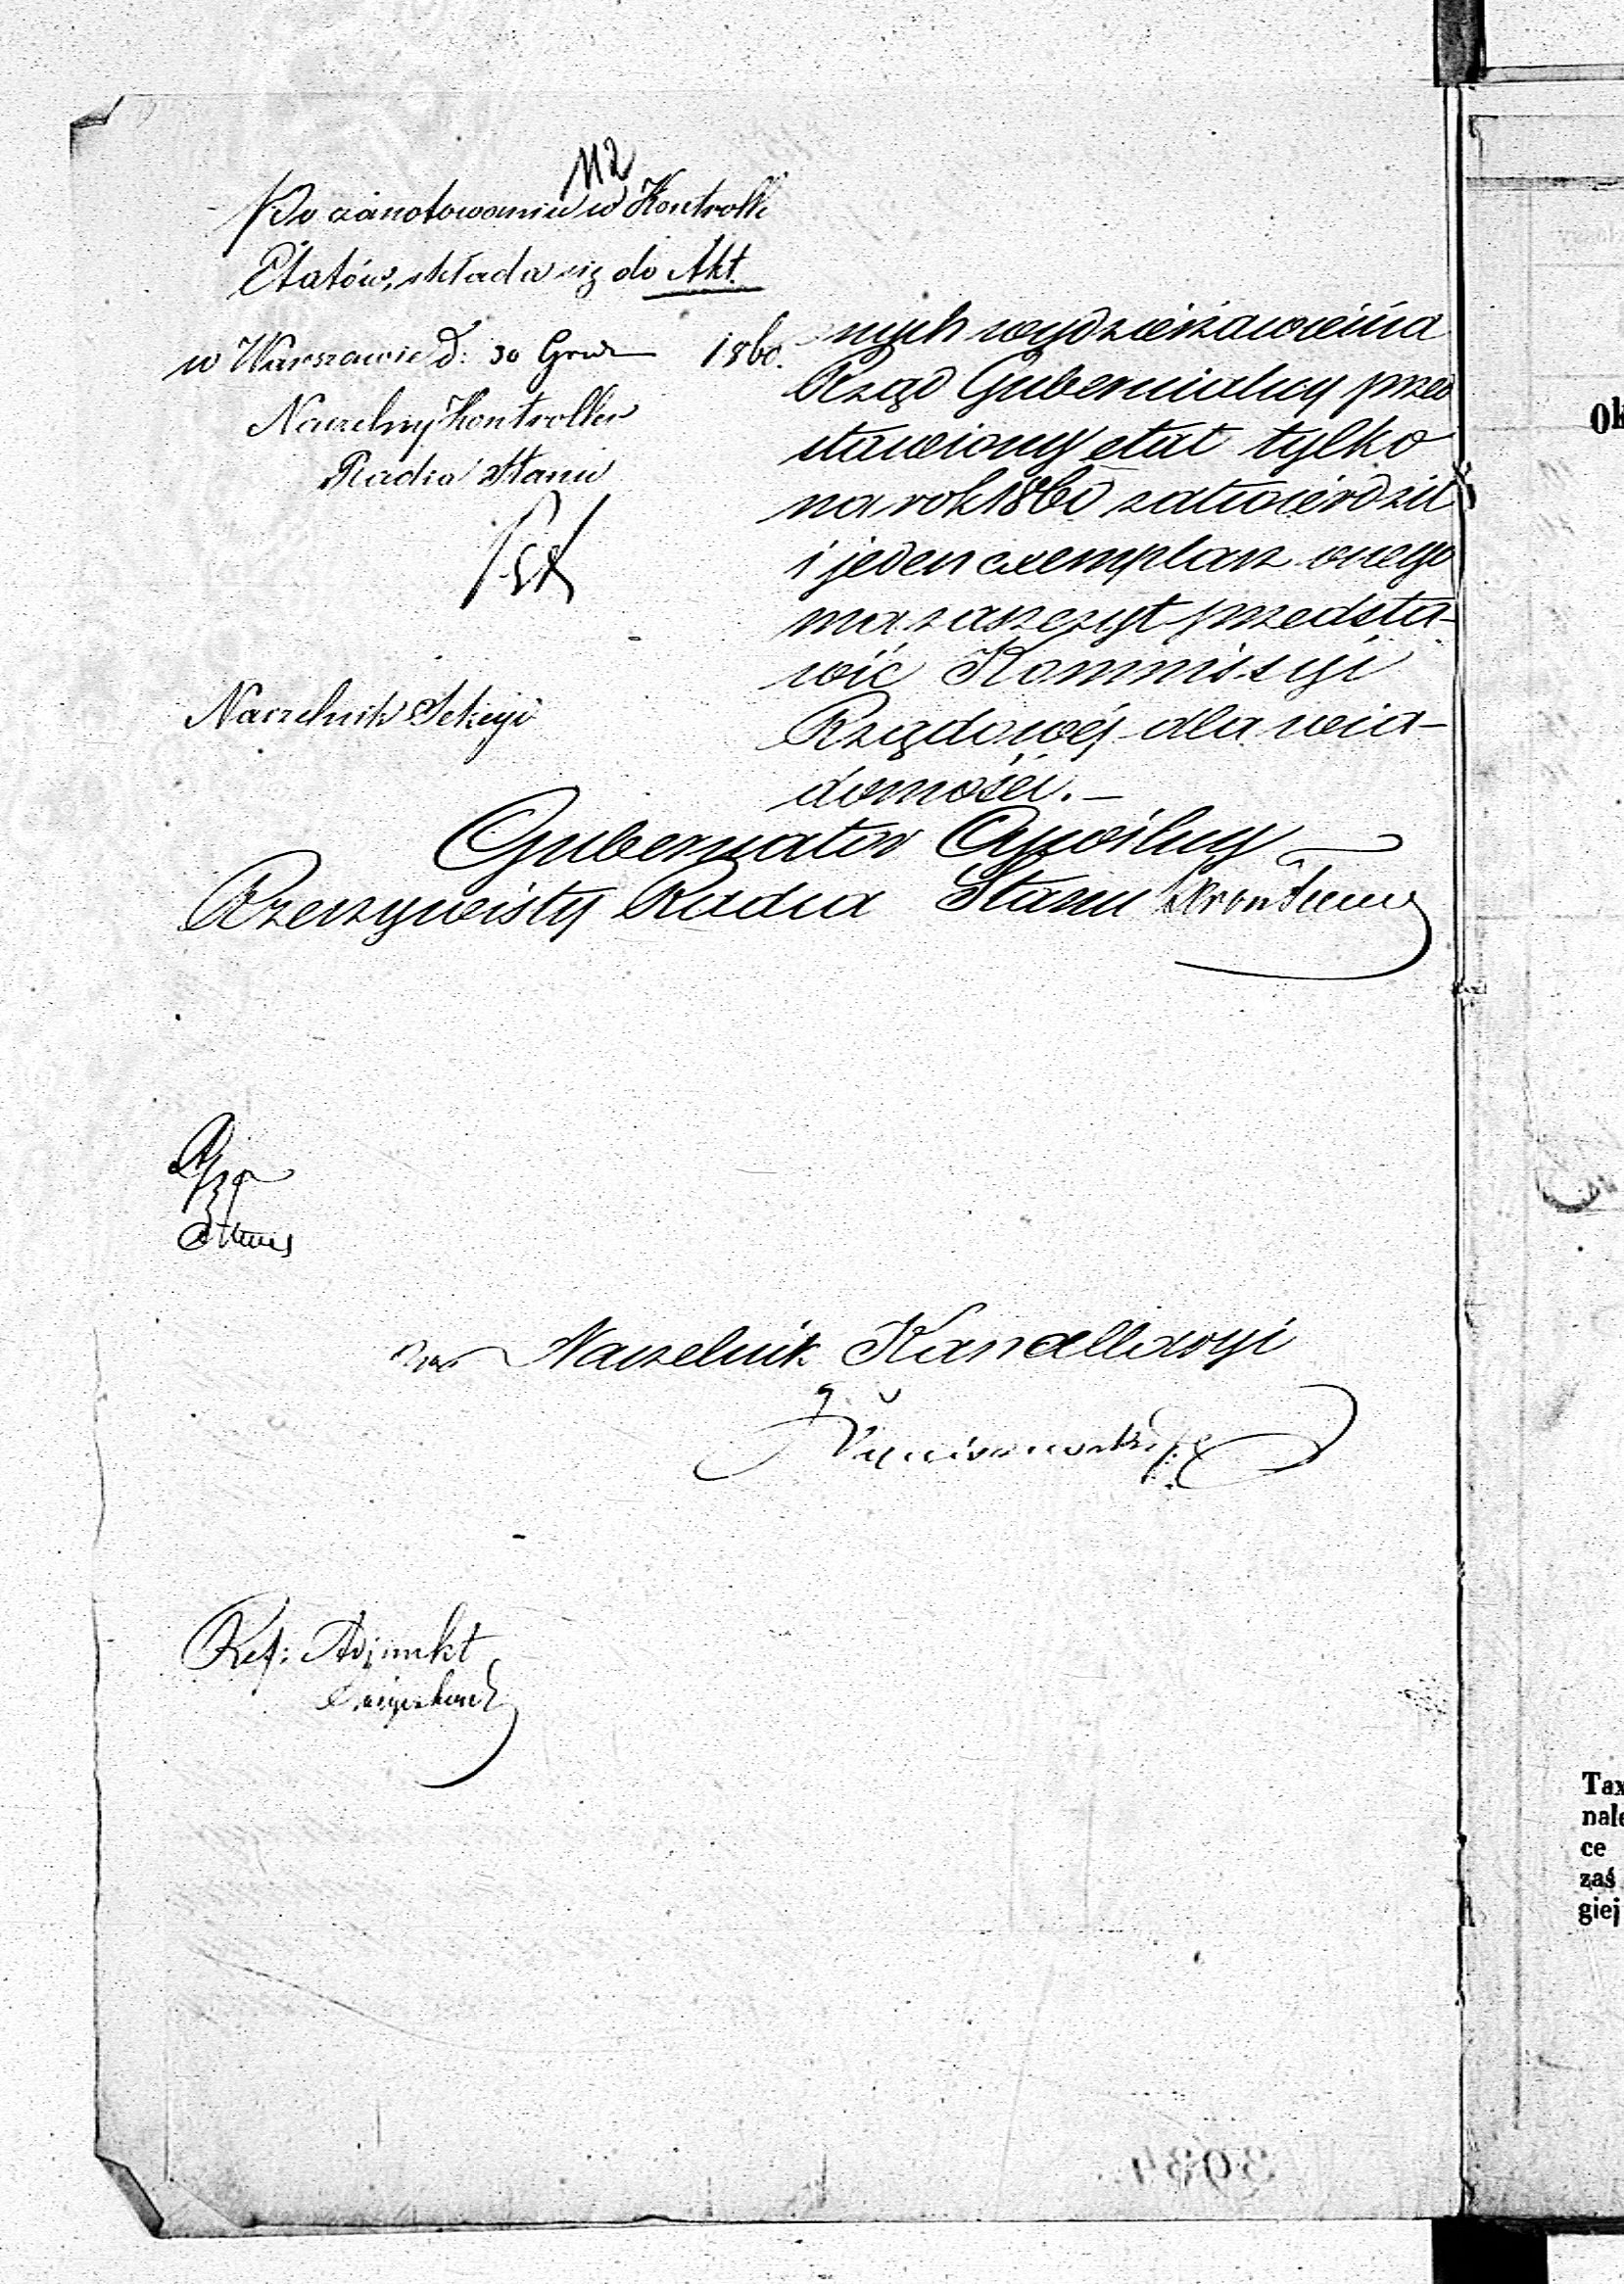 112
Po zanotowaniu w Kontrolli
Etatów, składa się do Akt.
w Warszawie d: 30 Grud 1860.
Naczelny Kontroller
Radca Stanu
Naczelnik Sekcyi
nych wydzierżawienia
Rząd Gubernialny przed
stawiony etat tylko
na rok 1860 zatwierdził
i jeden exemplarz onego
ma zaszczyt przedsta-
wić Kommissyi
Rządowéj dla wia-
domości. —
Gubernator Cywilny
Rzeczywisty Radca Stanu
Naczelnik Kancellaryi
Ref: Adjunkt
Ok
Tax
nale
ce
zaś
giej